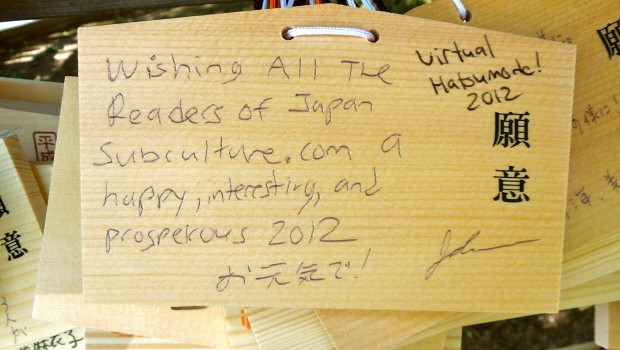 Wishing All The
Readers of Japan
Subculture.com a
happy, interesting, and
prosperous 2012
お元気で!
Virtual
Hatsumode!
2012
願意
願意
平成
願